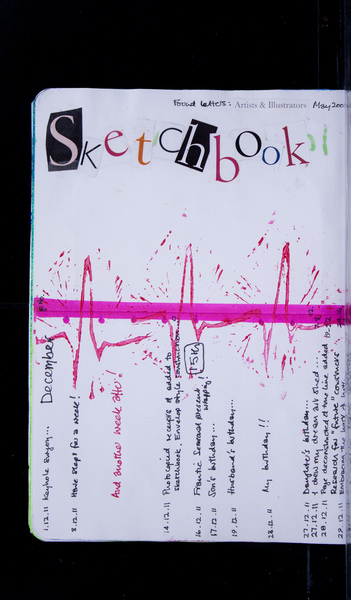 Found letters: Artists & Illustrators May 200
Sketchbook
December
1.12.11 Keyhole surgery...
8.12.11 Have slept for a week!
And another week after!
14.12.11 Photocopied receipts & added to
sketchbook. Envelope style
16.12.11 Frantic Seasonal present
wrapping!
17.12.11 Son's birthday...
19.12.11 Husband's birthday...
28.12.11 My birthday!!
27.12.11 Daughter's birthday...
27.12.11 I drew my dream
28.12.11 Page deconstructed & the line added
Research for "future"